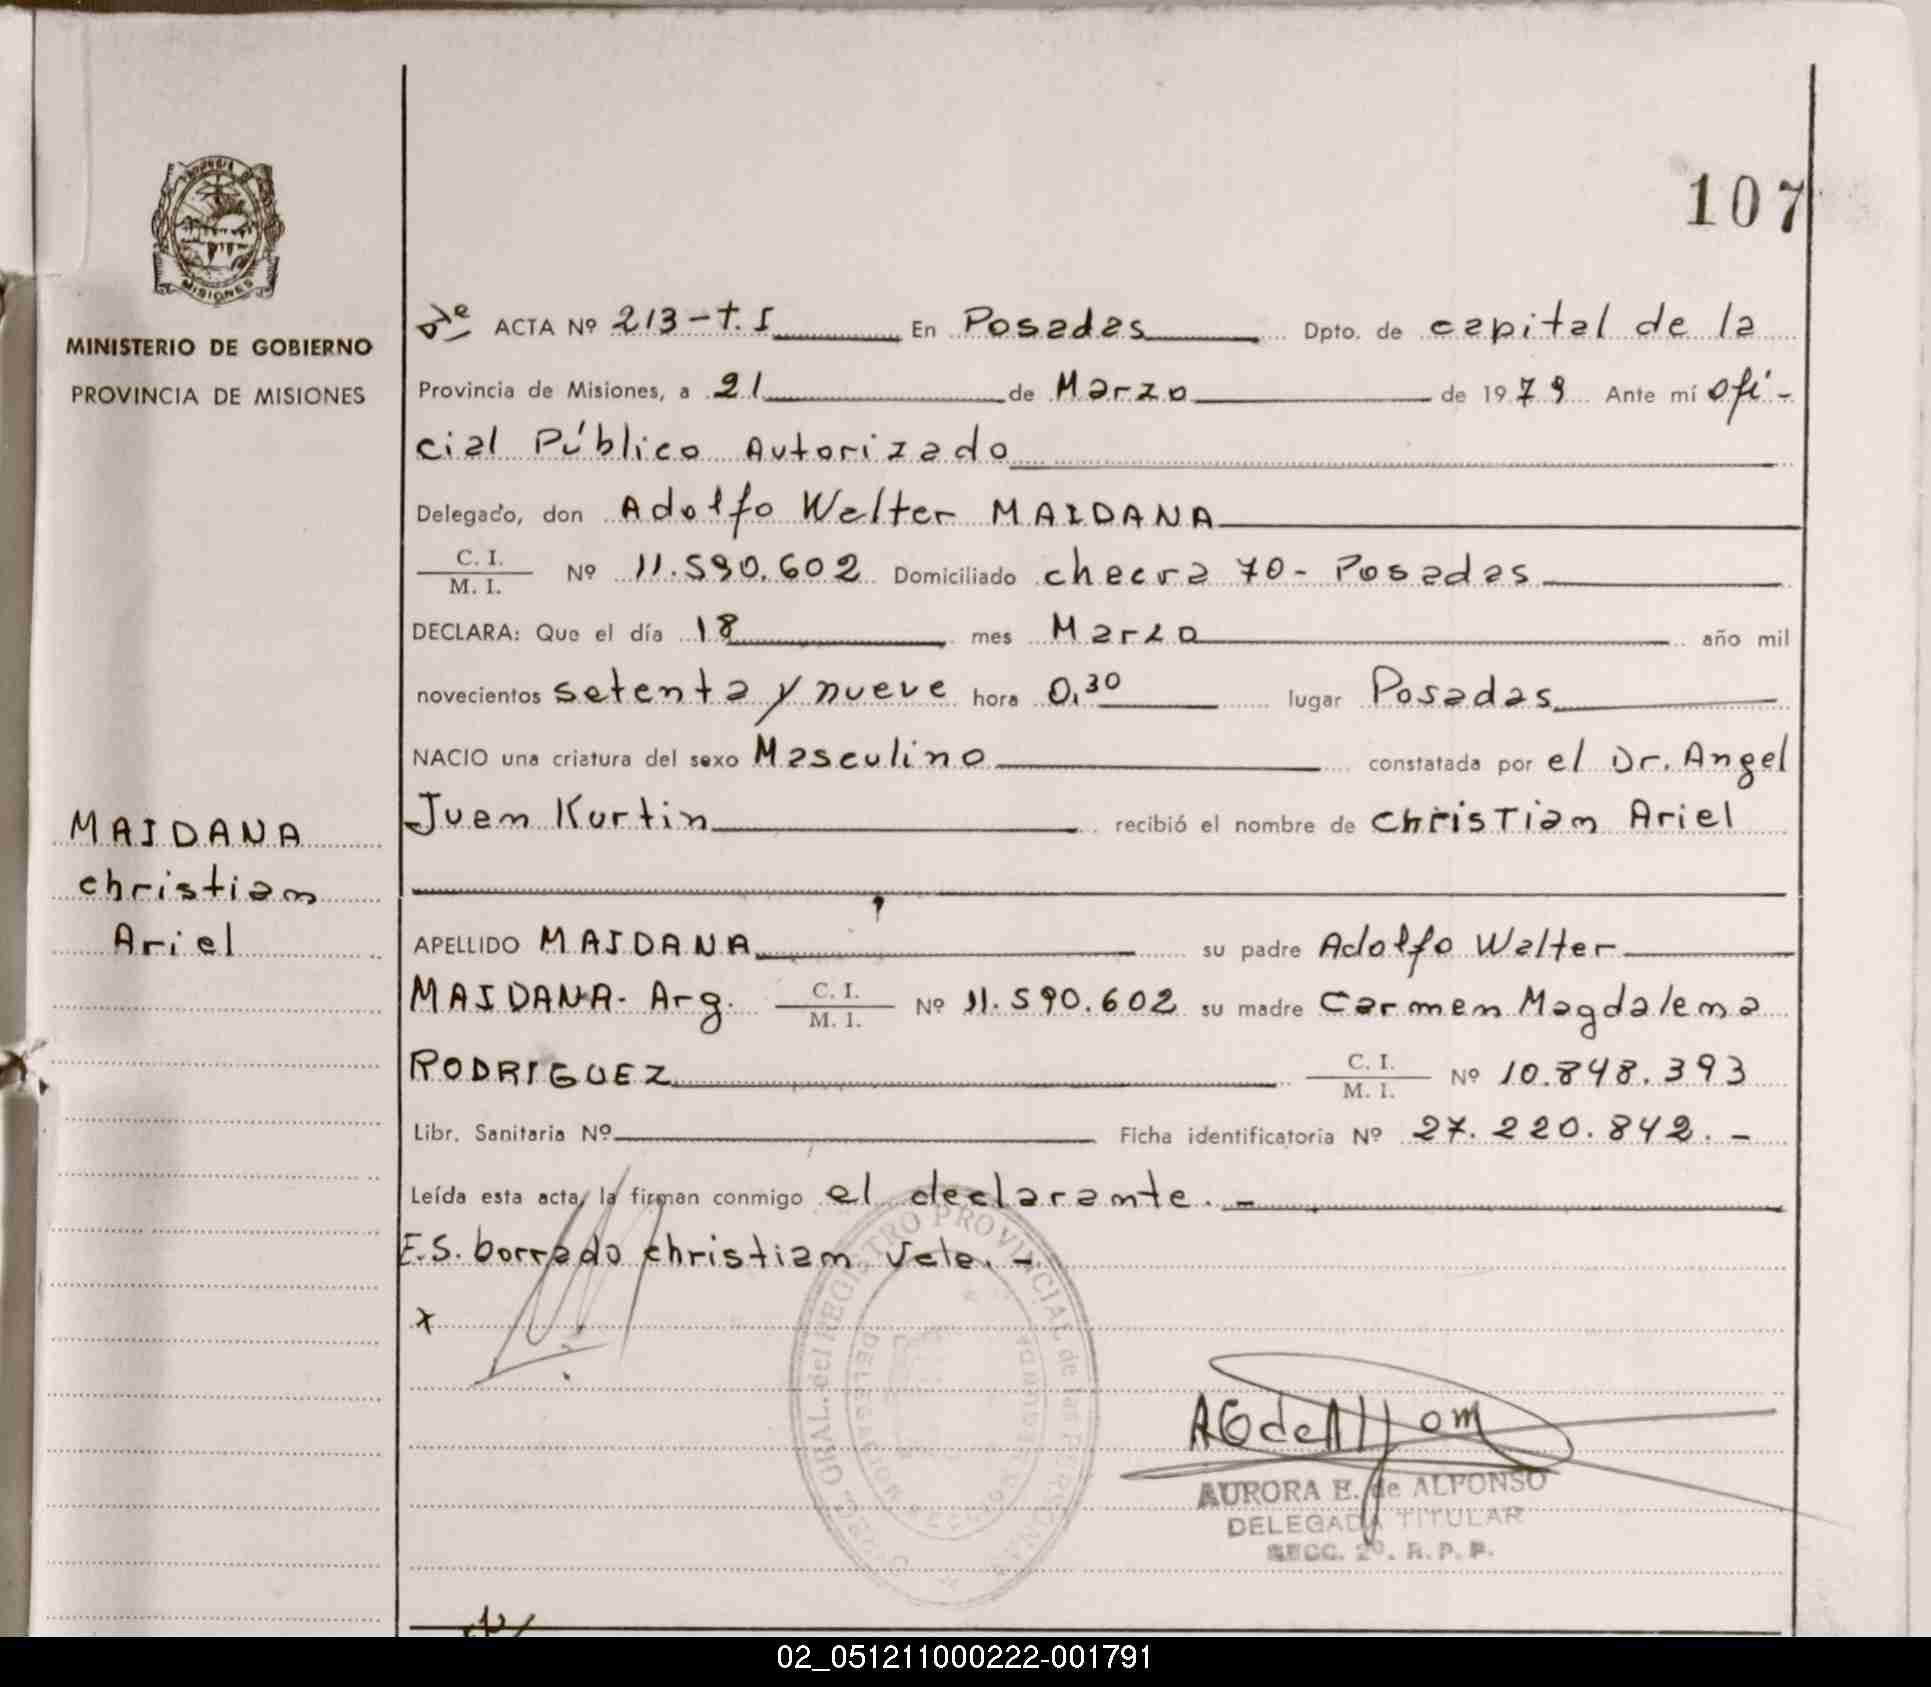 107
MISIONES
MINISTERIO DE GOBIERNO
PROVINCIA DE MISIONES
MAIDANA
christian
Ariel
ACTA Nº 213-T.I En Posadas Dpto. de capital de la
Provincia de Misiones, a 21 de Marzo de 1979 Ante mí ofi-
cial Público Autorizado
Delegado, don Adolfo Walter MAIDANA
C. I.
M. I. Nº 11.590.602 Domiciliado chacra 70- Posadas
DECLARA: Que el día 18 mes Marzo año mil
novecientos setenta y nueve hora 0,30 lugar Posadas
NACIO una criatura del sexo Masculino constatada por el Dr. Angel
Juan Kurtin recibió el nombre de christian Ariel
APELLIDO MAIDANA su padre Adolfo Walter
MAIDANA- Arg. C. I. M. I. Nº 11.590.602 su madre Carmen Magdalena
RODRIGUEZ C. I. M. I. Nº 10.848.393
Libr. Sanitaria Nº Ficha identificatoria Nº 27.220.842.-
Leída esta acta, la firman conmigo el declarante.-
E.S. borrado christian vale.-
x
GRAL. del REGISTRO PROVINCIAL de las PERSONAS
AURORA E. de ALFONSO
DELEGADA TITULAR
SECC. 2º. R. P. P.
02_051211000222-001791